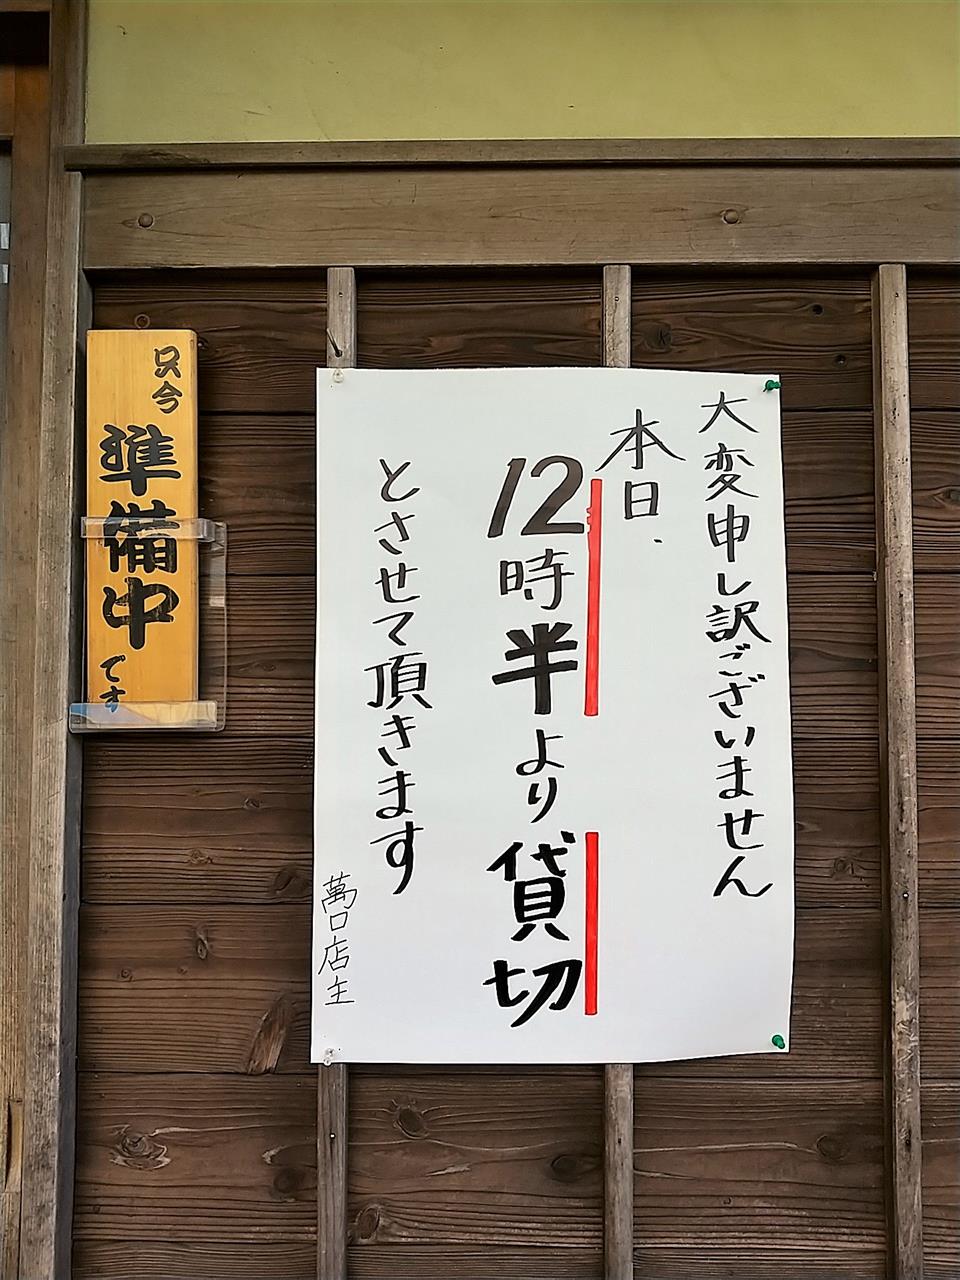 大変申し訳ございません
本日、
12時半より貸切
とさせて頂きます
萬口店主
只今
準備中
です